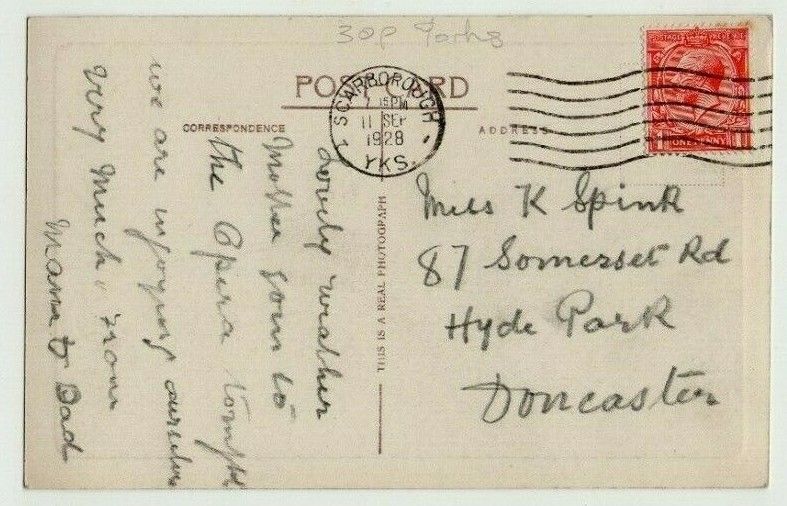 30p Yorks
POST CARD
CORRESPONDENCE
ADDRESS
SCARBOROUGH
15PM
11 SEP
1928
1 YKS.
POSTAGE REVENUE
ONE PENNY
THIS IS A REAL PHOTOGRAPH
Lovely weather
Mother goin to
the Opera tonight
we are injoying ourselves
very much from
Mama & Dad
Miss K Spink
87 Somerset Rd
Hyde Park
Doncaster